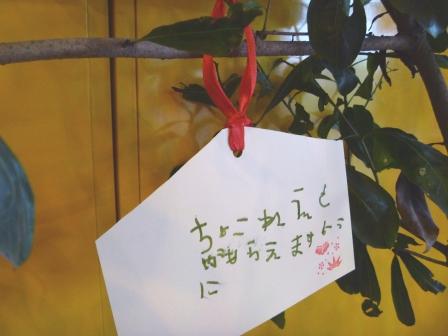 ちょこれえと
もらえますよう
に